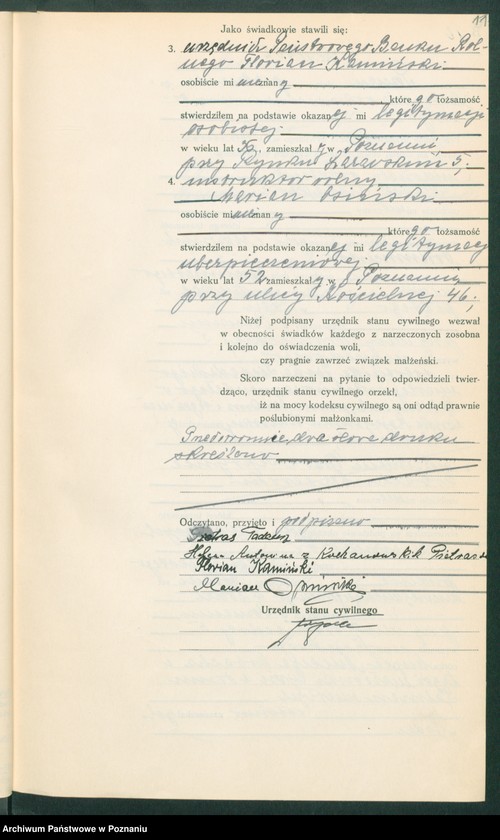 11
Jako świadkowie stawili się:
3. urzędnik Państwowego Banku Rol-
nego Florian Kamiński
osobiście mi nieznany
, którego tożsamość
stwierdziłem na podstawie okazanej mi legitymacji
osobistej
w wieku lat zamieszkały w Poznaniu
przy Rynku Łazarskim 5;
4. instruktor rolny
Marian Osiński
osobiście mi nieznany
, którego tożsamość
stwierdziłem na podstawie okazanej mi legitymacji
ubezpieczeniowej
w wieku lat 52 zamieszkały w Poznaniu
przy ulicy Kościelnej 46;
Niżej podpisany urzędnik stanu cywilnego wezwał
w obecności świadków każdego z narzeczonych zosobna
i kolejno do oświadczenia woli,
czy pragnie zawrzeć związek małżeński.
Skoro narzeczeni na pytanie to odpowiedzieli twier-
dząco, urzędnik stanu cywilnego orzekł,
iż na mocy kodeksu cywilnego są oni odtąd prawnie
poślubionymi małżonkami.
Przedstronnie dwa słowa druku
skreślono
Odczytano, przyjęto i podpisano
Pietras Tadeusz
Helena Antonina z Kochanowskich Pietras
Florian Kamiński
Marian Osiński
Urzędnik stanu cywilnego
Archiwum Państwowe w Poznaniu